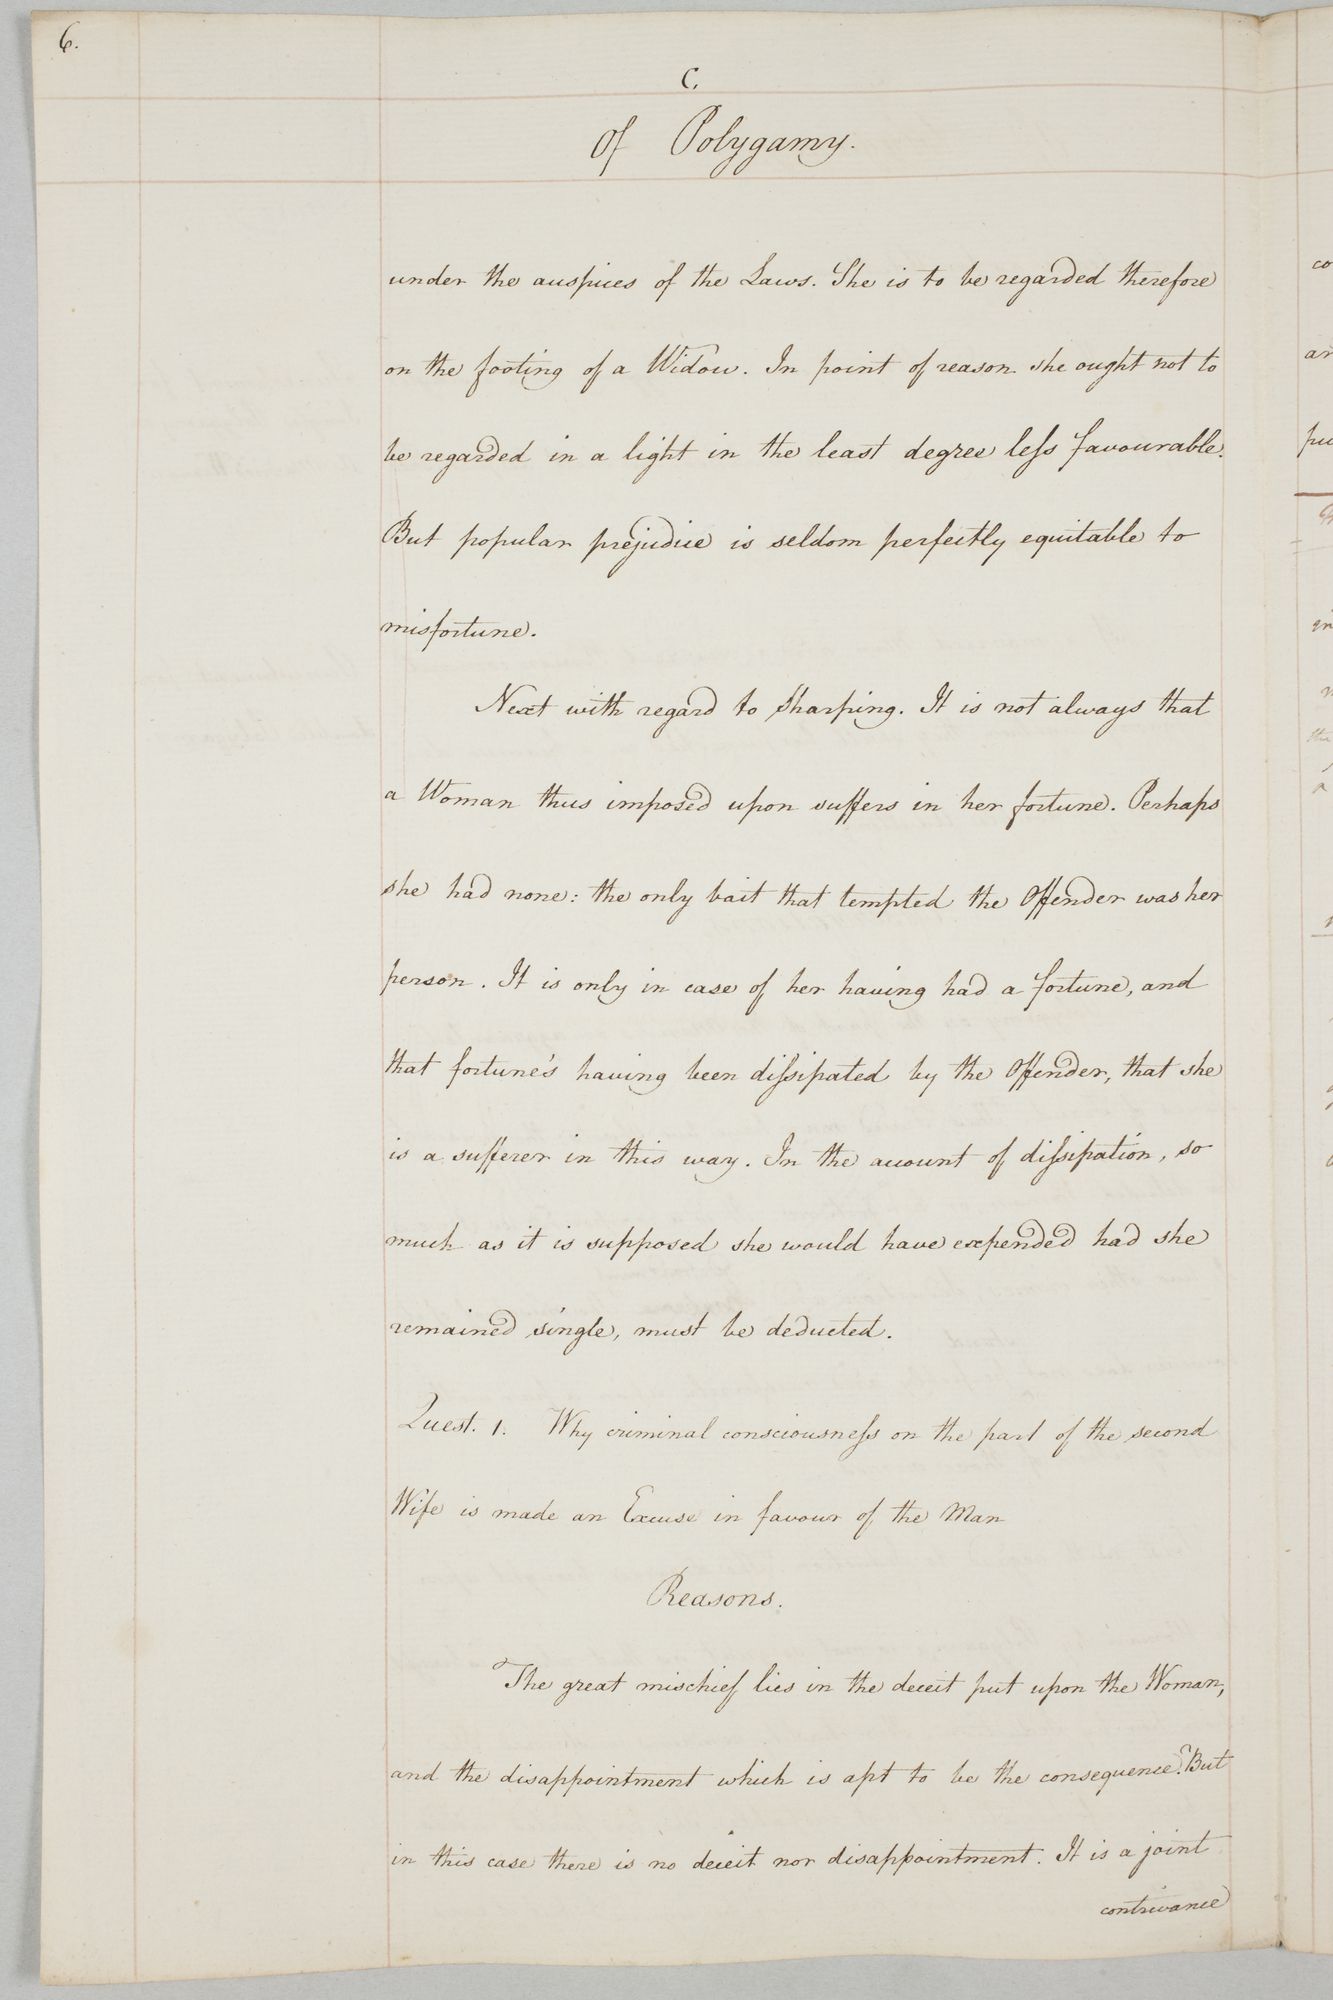 6.
C.
Of Polygamy.
under the auspices of the Laws. She is to be regarded therefore
on the footing of a Widow. In point of reason she ought not to
be regarded in a light in the least degree less favourable.
But popular prejudice is seldom perfectly equitable to
misfortune.
Next with regard to Sharping. It is not always that
a Woman thus imposed upon suffers in her fortune. Perhaps
she had none: the only bait that tempted the Offender was her
person. It is only in case of her having had a fortune, and
that fortune's having been dissipated by the Offender, that she
is a sufferer in this way. In the account of dissipation, so
much as it is supposed she would have expended had she
remained single, must be deducted.
Quest. 1. Why criminal consciousness on the part of the second
Wife is made an Excuse in favour of the Man
Reasons.
The great mischief lies in the deceit put upon the Woman,
and the disappointment which is apt to be the consequence. But
in this case there is no deceit nor disappointment. It is a joint
contrivance